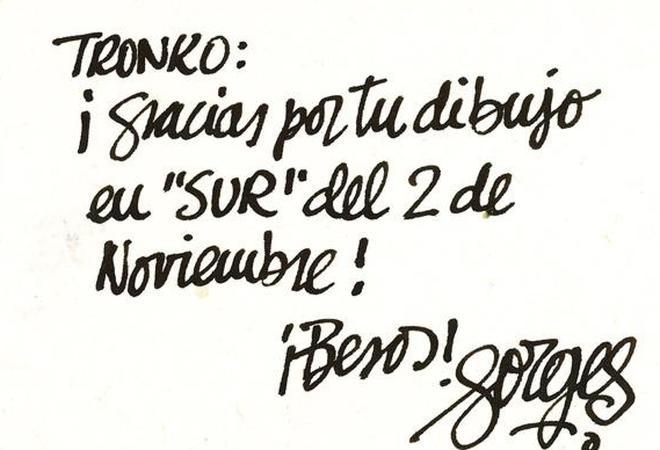 TRONKO:
¡Gracias por tu dibujo
en "SUR" del 2 de
Noviembre!
¡Besos! Gorges